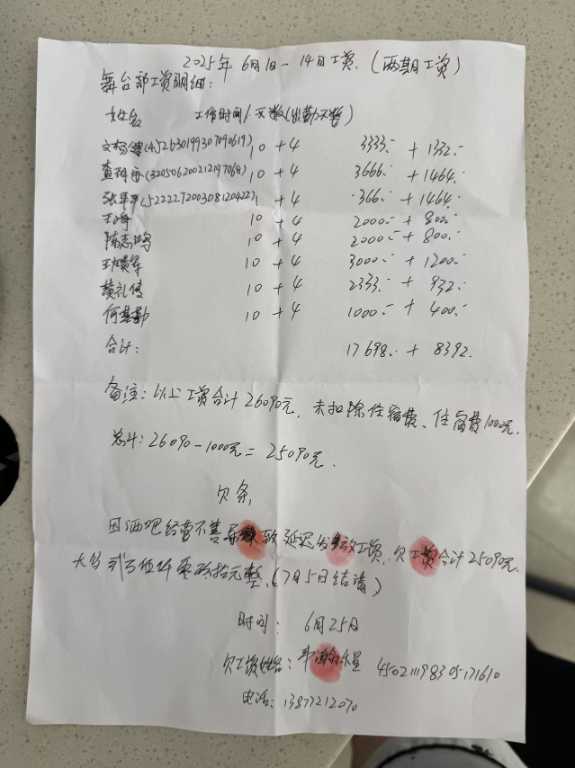 2025年 6月1日-14日工资.（两期工资）
舞台部工资明细：
姓名 工作时间/天数(出勤天数)
(452630199307090619) 10 +4 3333.- + 1332.-
查 (320506200212197068) 10 +4 3666.- + 1464.-
张 (522227200308120422) 1 +4 366.- + 1464.-
10 +4 2000.- + 800.-
陈志鸣 10 +4 2000.- + 800.-
10 +4 3000.- + 1200.-
黄礼 10 +4 2333.- + 932.-
何基勤 10 +4 1000.- + 400.-
合计： 17698.- + 8392.
备注：以上工资合计26090元，未扣除住宿费、住宿费1000元.
总计：26090-1000元=25090元.
欠条
因酒吧经营不善导致延迟发放工资，欠工资合计25090元.
大写贰万伍仟零玖拾元整.（7月5日结清）
时间： 6月25日
欠工资姓名： 450211198305171610
电话：13877212070